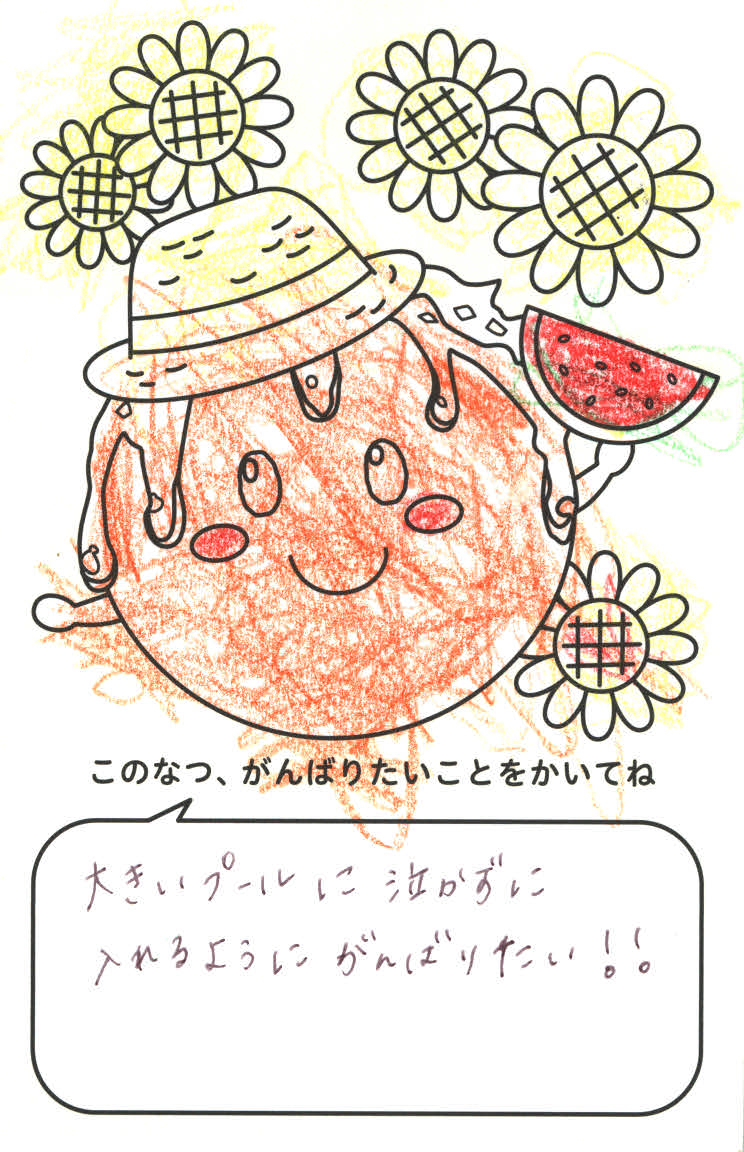 このなつ、がんばりたいことをかいてね
大きいプールに泣かずに
入れるようにがんばりたい!!